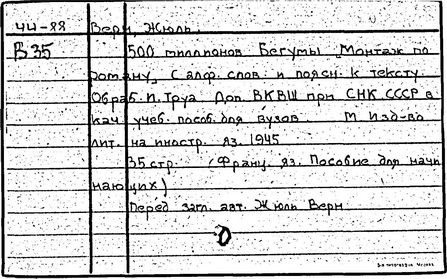 44-88 Верн, Жюль.
В 35 500 миллионов Бегумы Монтаж по
роману, С алф. слов. и поясн. к тексту
Обраб. П. Труа. Доп. ВКВШ при СНК СССР в
кач. учеб. пособ. для вузов М Изд-во
лит. на иностр. яз. 1945
35 стр. (Франц. яз. Пособие для начи
нающих)
Перед загл. авт. Жюль Верн